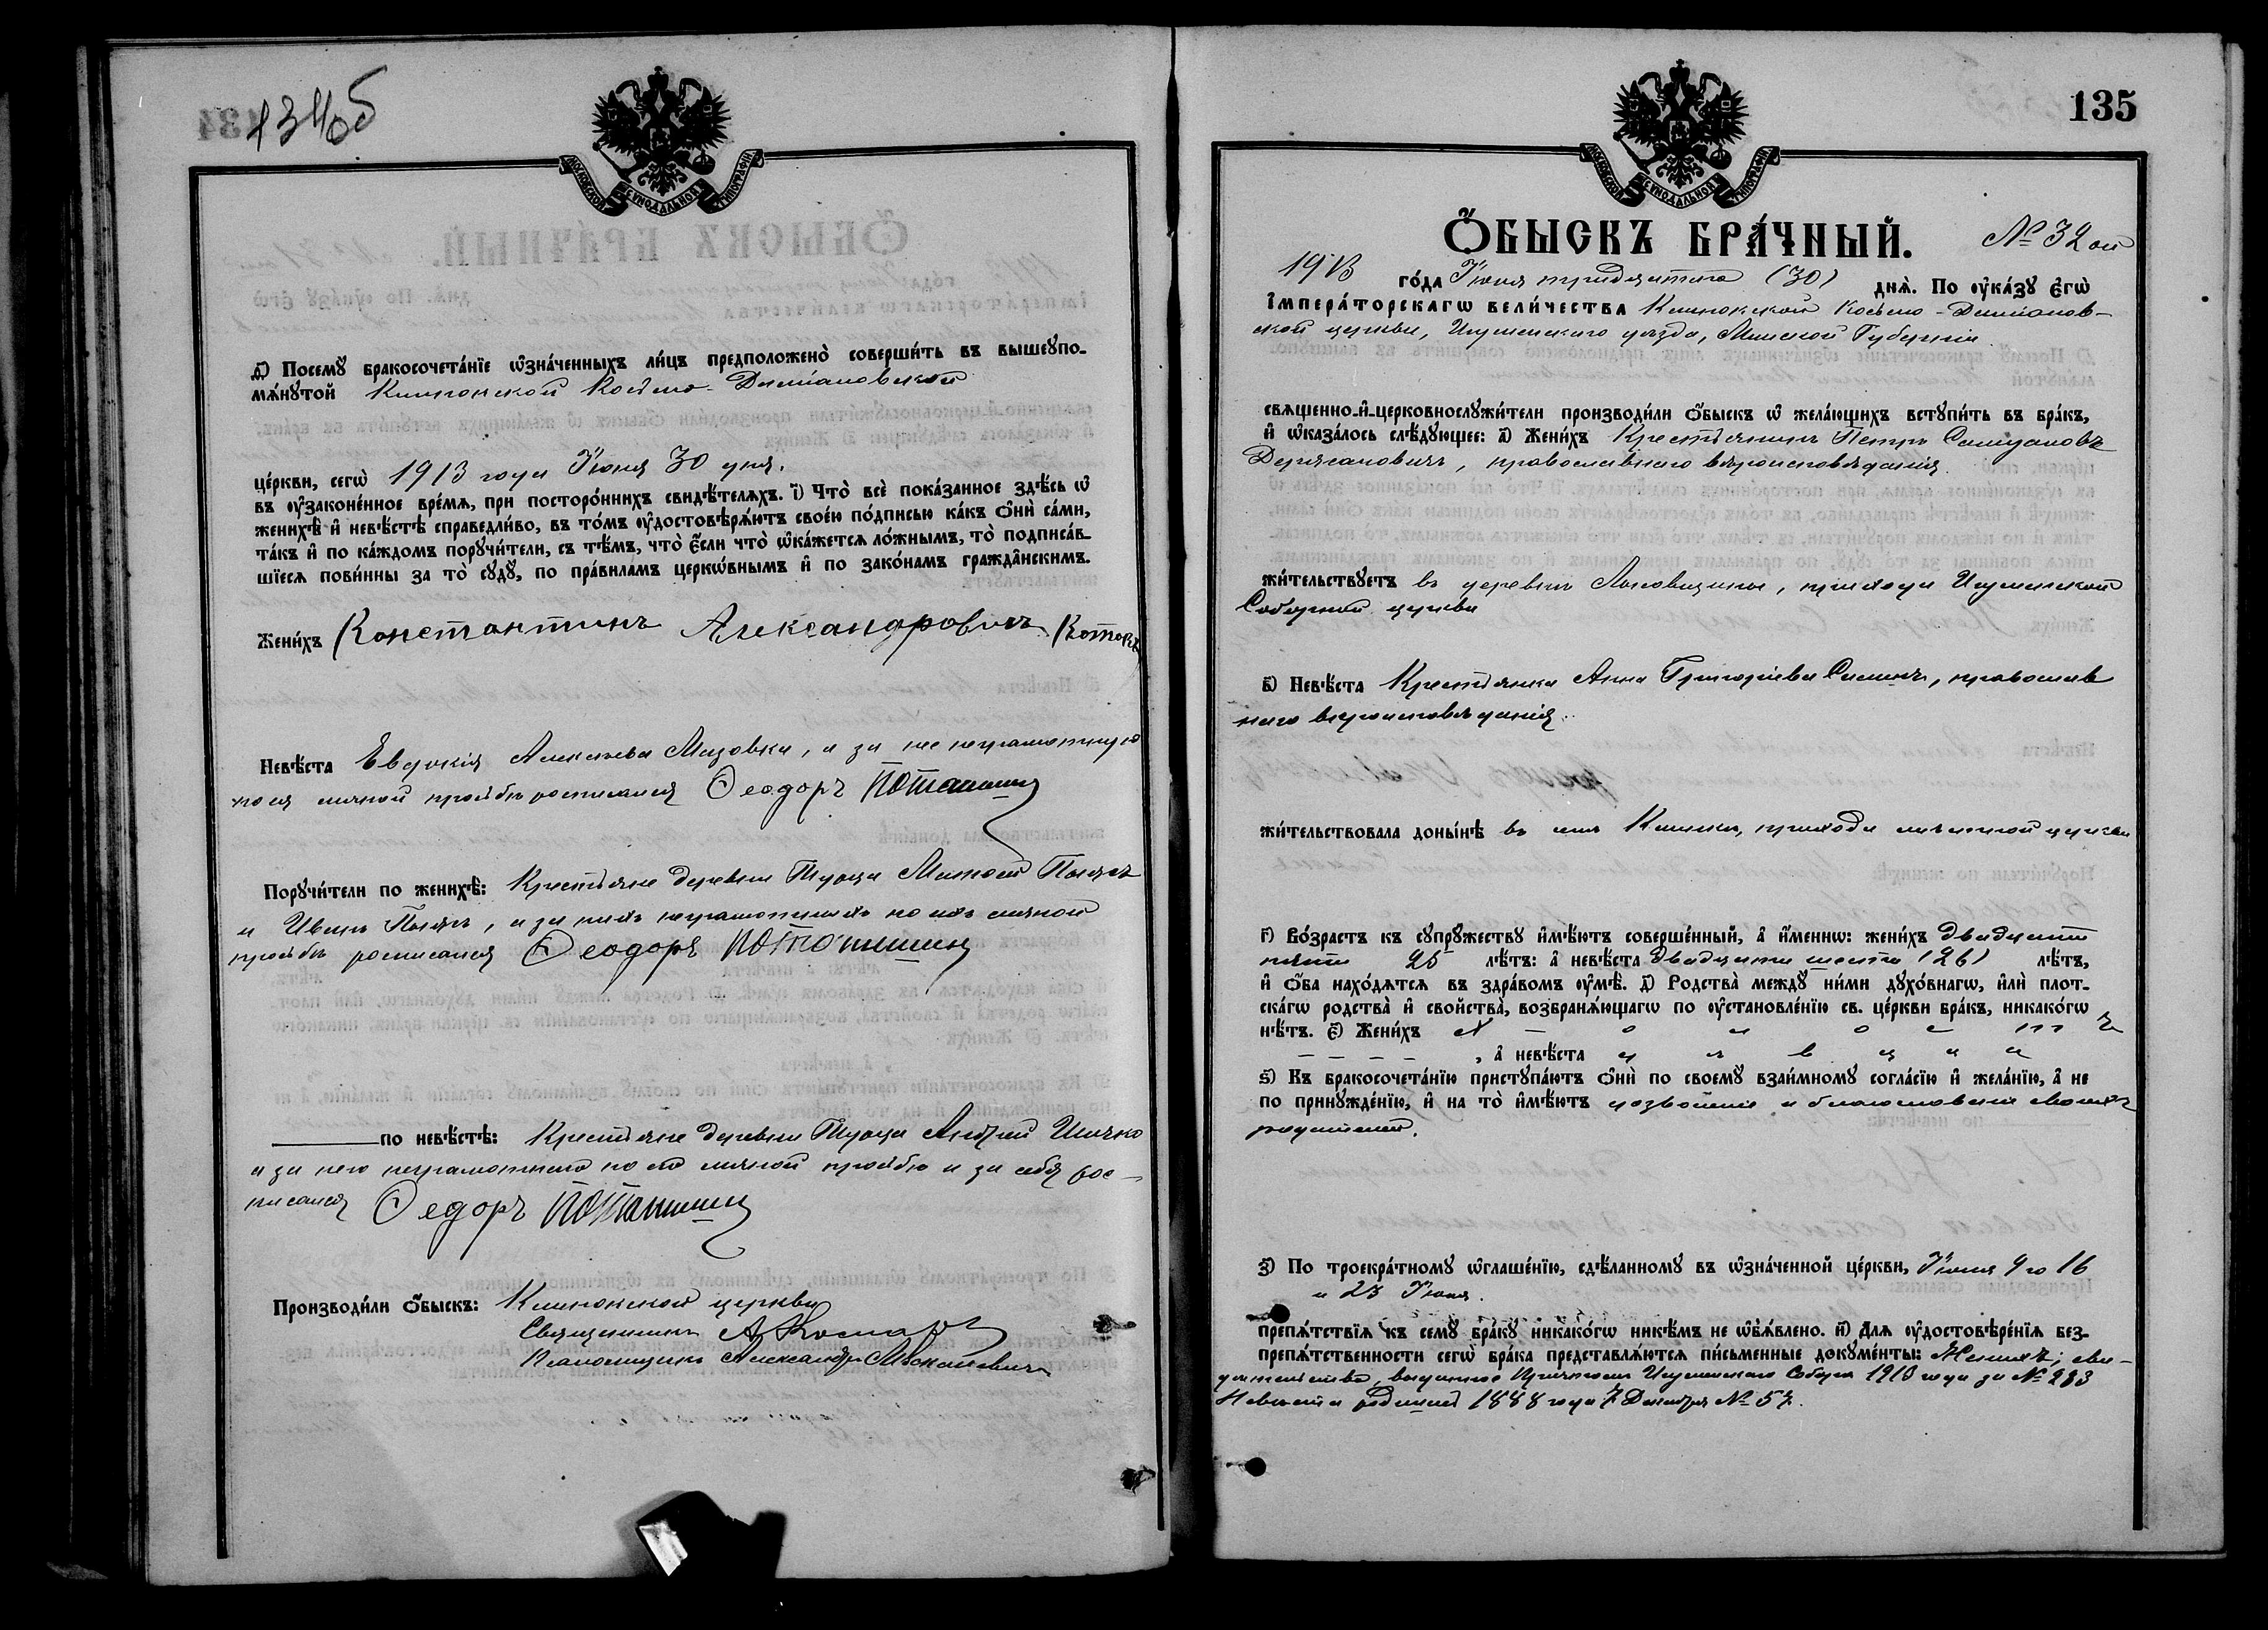 134 об
МОСКОВСКОЙ СѴНОДАЛЬНОЙ ТИПОГРАФІИ
д҃) Посемꙋ̀ бракосочета́нїе ѡ҆зна́ченныхъ ли́цъ предположено̀ соверши́ть въ вышеꙋпо-
мѧ́нꙋтой Клинокской Косьмо-Даміановской
це́ркви, сегѡ̀ 1913 года Іюня 30 дня.
въ ᲂу҆законе́нное вре́мѧ, при посторо́ннихъ свидѣ́телѧхъ. і҃) Что̀ всѐ пока́занное здѣ́сь ѡ҆
женихѣ̀ и҆ невѣ́стѣ справедли́во, въ то́мъ ᲂу҆достовѣрѧ́ютъ свое́ю по́дписью ка́къ ѻ҆нѝ са́ми,
та́къ и҆ по ка́ждомъ порꙋчи́тели, съ тѣ́мъ, что̀ є҆́сли что̀ ѡ҆ка́жетсѧ ло́жнымъ, то̀ подписа́в-
шїесѧ пови́нны за то̀ сꙋдꙋ̀, по пра́виламъ церко́внымъ и҆ по зако́намъ гражда́нскимъ.
Жени́хъ Константинъ Александровичъ Котовъ
Невѣ́ста Евдокія Алексѣева Мазовка, а за нее неграмотную
по ея личной просьбѣ росписался Ѳеодоръ Поташин
Порꙋчи́тели по женихѣ̀: Крестьяне деревни Турца
и Иванъ, а за нихъ неграмотныхъ по ихъ личной
просьбѣ росписался Ѳеодоръ Поташин
по невѣ́стѣ: Крестьяне деревни Турца Андрей
а за него неграмотнаго по его личной просьбѣ и за себя рос-
писался Ѳедоръ Поташин
Производи́ли ѻ҆́быскъ: Клинокской церкви
Священникъ А. Комаръ
Псаломщикъ Александръ
135
МОСКОВСКОЙ СѴНОДАЛЬНОЙ ТИПОГРАФІИ
Ѻ҆́БЫСКЪ БРА́ЧНЫЙ. № 32 ой
1913 го́да Іюня тридцятаго (30) днѧ̀. По ᲂу҆ка́зꙋ є҆гѡ̀
І҆мпера́торскагѡ вели́чества Клинокской Косьмо-Даміанов-
ской церкви, Игуменскаго уѣзда, Минской Губерніи.
свѧще́нно-и҆-церковнослꙋжи́тели производи́ли ѻ҆́быскъ ѡ҆ жела́ющихъ встꙋпи́ть въ бра́къ,
и҆ ѡ҆каза́лось слѣ́дꙋющее: а҃) Жени́хъ Крестьянинъ Петръ Самуиловъ
православнаго вѣроисповѣданія.
жи́тельствꙋетъ въ деревнѣ, прихода Игуменской
Соборной церкви
в҃) Невѣ́ста Крестьянка Анна Григоріева, православ
наго вѣроисповѣданія.
жи́тельствовала доны́нѣ въ Клинки, прихода мѣстной церкви
г҃) Во́зрастъ къ сꙋпрꙋ́жествꙋ и҆мѣ́ютъ соверше́нный, а҆ и҆́меннѡ: жени́хъ двадцати
пяти 25 лѣ́тъ: а҆ невѣ́ста двадцати шести (26) лѣ́тъ,
и҆ ѻ҆́ба нахо́дѧтсѧ въ здра́вомъ ᲂу҆мѣ̀. д҃) Родства̀ междꙋ̀ ни́ми дꙋхо́внагѡ, и҆лѝ плот-
ска́гѡ родства̀ и҆ свойства̀, возбранѧ́ющагѡ по ᲂу҆становле́нїю св. це́ркви бра́къ, никако́гѡ
нѣ́тъ. є҃) Жени́хъ х о л о с т ъ
, а҆ невѣ́ста д ѣ в и ц а
ѕ҃) Къ бракосочета́нїю пристꙋпа́ютъ ѻ҆нѝ по своемꙋ̀ взаи́мномꙋ согла́сїю и҆ жела́нїю, а҆ не
по принꙋжде́нїю, и҆ на то̀ и҆мѣ́ютъ дозволеніе и благословеніе своихъ
родителей.
з҃) По троекра́тномꙋ ѡ҆глаше́нїю, сдѣ́ланномꙋ въ ѡ҆зна́ченной це́ркви, Іюня 9 го 16
и 23 Іюня.
препѧ́тствїѧ къ семꙋ̀ бра́кꙋ никако́гѡ никѣ́мъ не ѡ҆б̾ѧ́влено. и҃) Длѧ ᲂу҆достовѣре́нїѧ без-
препѧ́тственности сегѡ̀ бра́ка представлѧ́ютсѧ пи́сьменные докꙋме́нты: Жениха; сви-
дѣтельство, выданное Причтомъ Игуменскаго Собора 1913 года за № 283
Невѣста родилась 1888 года 7 Декабря № 57.